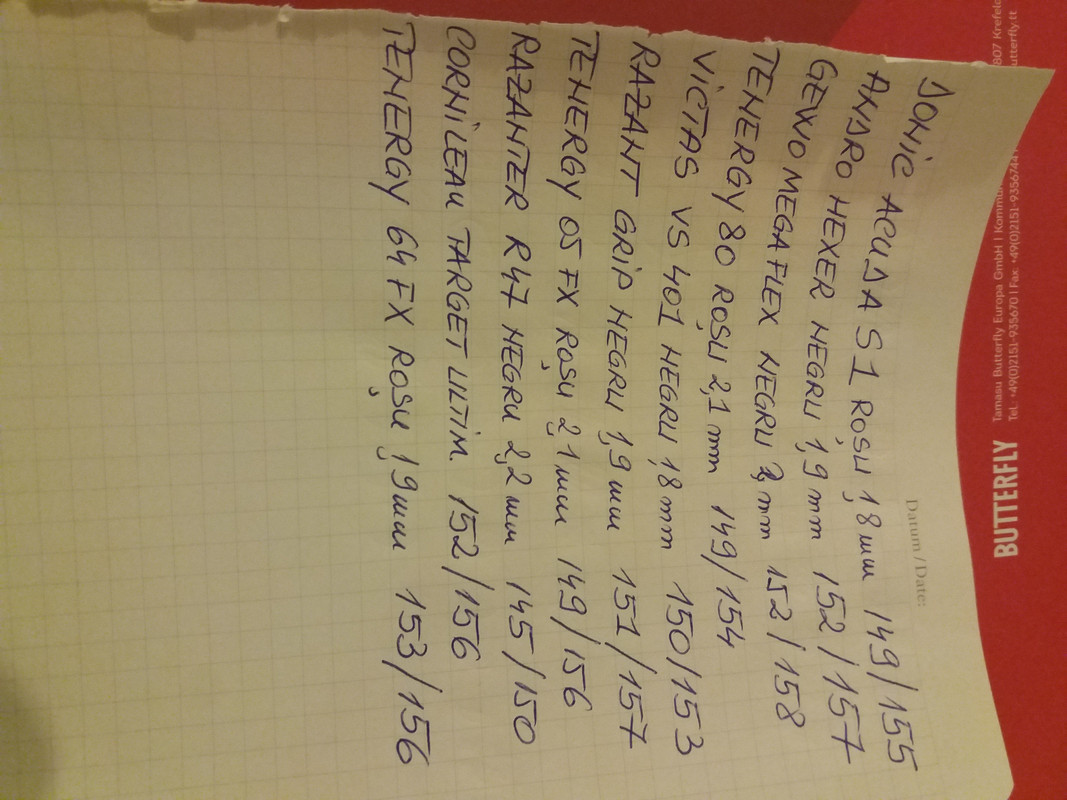 BUTTERFLY
Tamasu Butterfly Europa GmbH | 807
Tel.: +49(0)2151-935670 | Fax: butterfly.tt
Datum / Date:
DONIC ACUDA S1 ROȘU 1,8 mm 149/155
ANDRO HEXER NEGRU 1,9 mm 152/157
GEWO MEGA FLEX NEGRU 2,mm 152/158
TENERGY 80 ROȘU 2,1 mm 149/154
VICTAS VS 401 NEGRU 1,8 mm 150/153
RAZANT GRIP NEGRU 1,9 mm 151/157
TENERGY 05 FX ROȘU 2,1 mm 149/156
RAZANTER R47 NEGRU 2,2 mm 145/150
CORNILEAU TARGET ULTIM. 152/156
TENERGY 64 FX ROȘU 1,9 mm 153/156